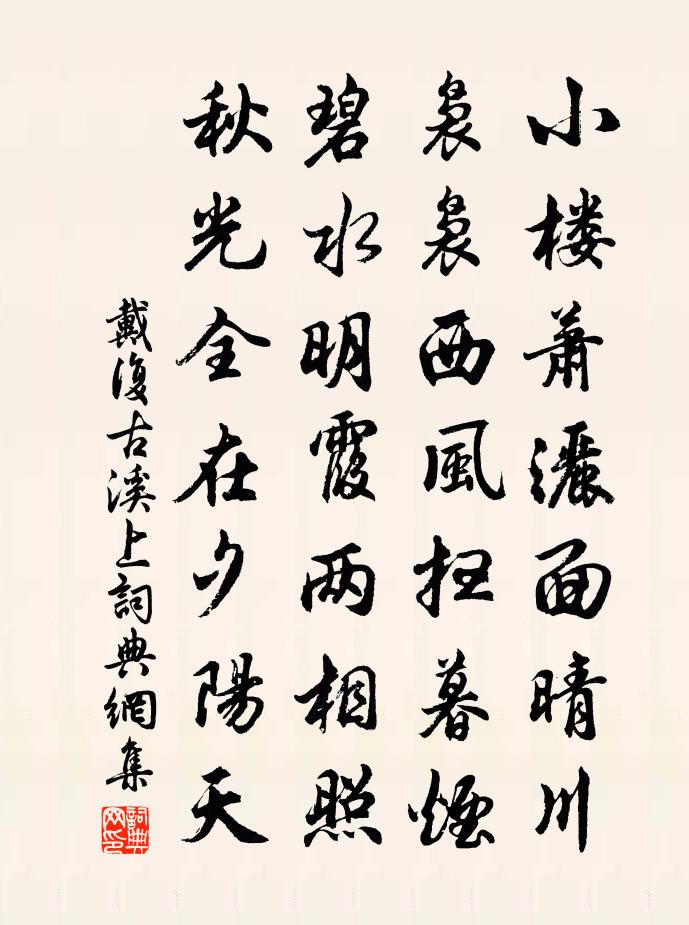 小楼蕭灑面晴川
袅袅西風扫暮煙
碧水明霞两相照
秋光全在夕陽天
戴復古溪上詞典網集
詞典網印